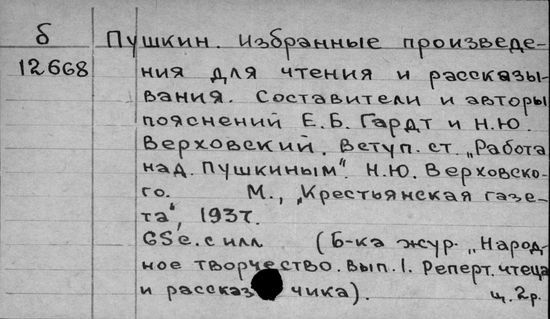 б Пушкин. Избранные произведе-
12668 ния для чтения и рассказы-
вания. Составители и авторы
пояснений Е.Б. Гардт и Н.Ю.
Верховский. Вступ. ст. „Работа
над Пушкиным". Н.Ю. Верховско-
го. М., „Крестьянская газе-
та", 1937.
с илл (Б-ка жур. „Народ-
ное творчество. Вып. 1. Реперт. чтеца
и рассказчика). ц. 2р.